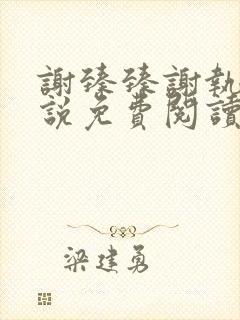 謝臻臻謝執
説免費閱讀
梁建勇